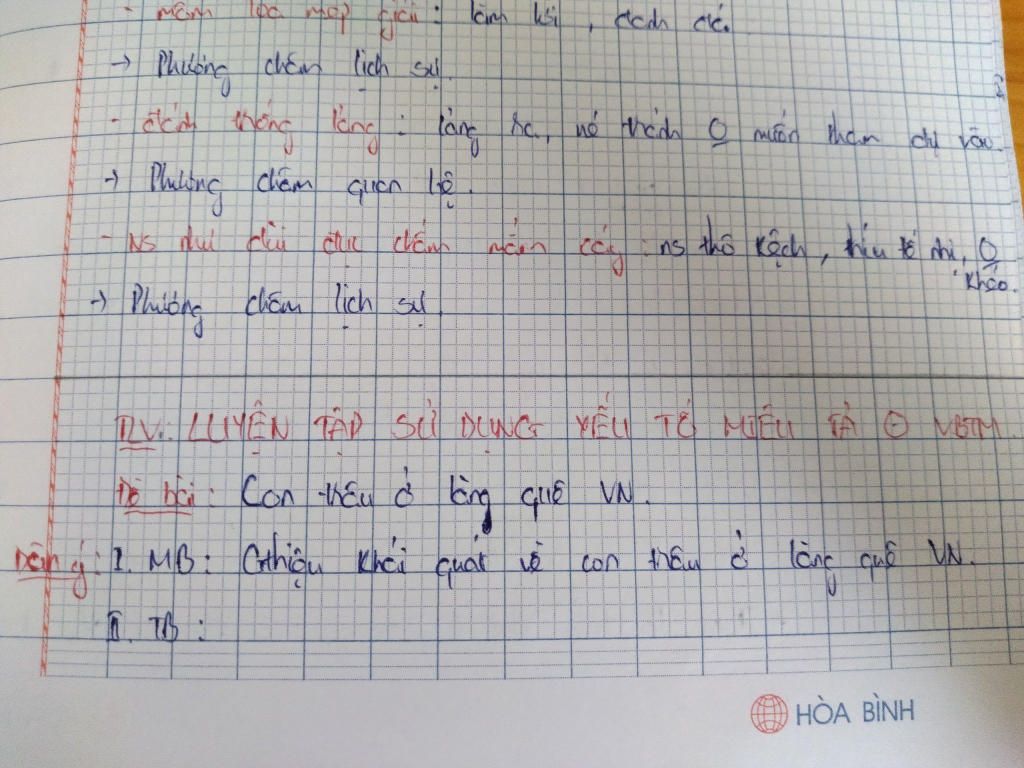 - mồm loa mép giải: lắm lời, đanh đá.
→ Phương châm lịch sự.
- đánh trống lảng: lảng ra, né tránh O muốn tham dự vào
→ Phương châm quan hệ.
- NS như dùi đục chấm mắm cáy: ns thô kệch, thiếu tế nhị, O khéo.
→ Phương châm lịch sự.
IV. LUYỆN TẬP SỬ DỤNG YẾU TỐ MIÊU TẢ VBTM
Đề bài: Con trâu ở làng quê VN.
Dàn ý: I. MB: Gthiệu khái quát về con trâu ở làng quê VN.
II. TB:
HÒA BÌNH